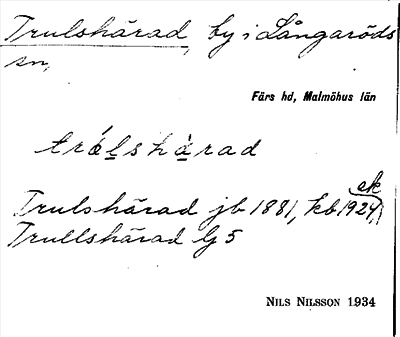 Trulshärad, by i Långaröds
sn,
Färs hd, Malmöhus län
trólshàrad
ek
Trulshärad jb 1881, kb 1924,
Trullshärad G 5
NILS NILSSON 1934